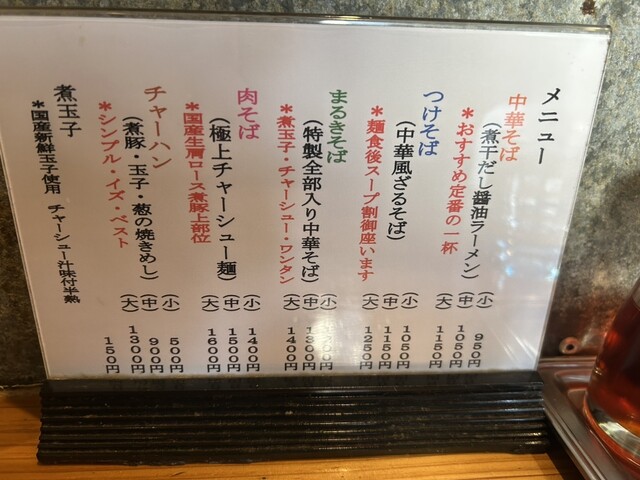 メニュー
中華そば
(煮干だし醤油ラーメン)
*おすすめ定番の一杯
(小) 950円
(中) 1050円
(大) 1150円
つけそば
(中華風ざるそば)
*麺食後スープ割御座います
(小) 1050円
(中) 1150円
(大) 1250円
まるきそば
(特製全部入り中華そば)
*煮玉子・チャーシュー・ワンタン
(小) 1200円
(中) 1300円
(大) 1400円
肉そば
(極上チャーシュー麺)
*国産生肩ロース煮豚上部位
(小) 1400円
(中) 1500円
(大) 1600円
チャーハン
(煮豚・玉子・葱の焼きめし)
*シンプル・イズ・ベスト
(小) 500円
(中) 900円
(大) 1300円
煮玉子
*国産新鮮玉子使用 チャーシュー汁味付半熟
150円